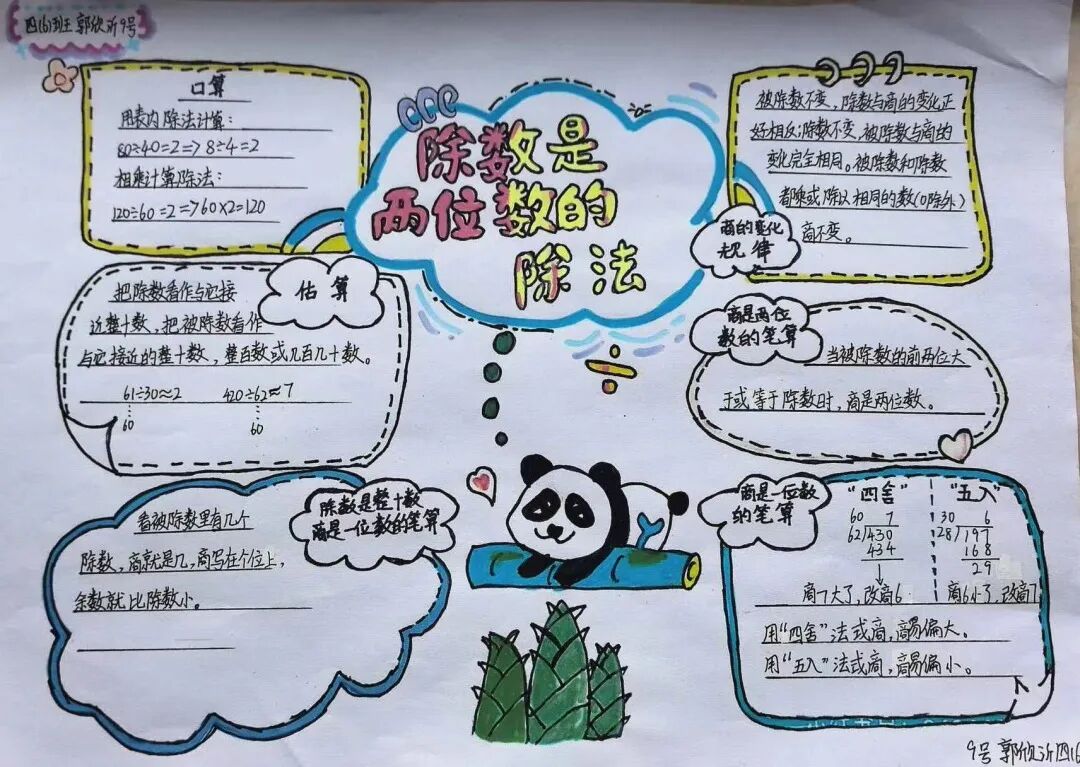 四(6)班 郭欣沂 9号
除数是
两位数的
除法
口算
用表内除法计算:
80÷40=2=>8÷4=2
相乘计算除法:
120÷60=2=>60×2=120
估算
把除数看作与它接
近整十数,把被除数看作
与它接近的整十数,整百数或几百几十数。
61÷30≈2 420÷62≈7
60 60
除数是整十数
商是一位数的笔算
看被除数里有几个
除数,商就是几,商写在个位上,
余数就比除数小。
商的变化
规律
被除数不变,除数与商的变化正
好相反;除数不变,被除数与商的
变化完全相同。被除数和除数
都乘或除以相同的数(0除外)
商不变。
商是两位
数的笔算
当被除数的前两位大
于或等于除数时,商是两位数。
商是一位数
的笔算
"四舍" "五入"
60 7 30 6
62/430 28/197
434 168
29
商7大了,改商6 商6小了,改商7
用"四舍"法试商,商易偏大。
用"五入"法试商,商易偏小。
9号 郭欣沂 四(6